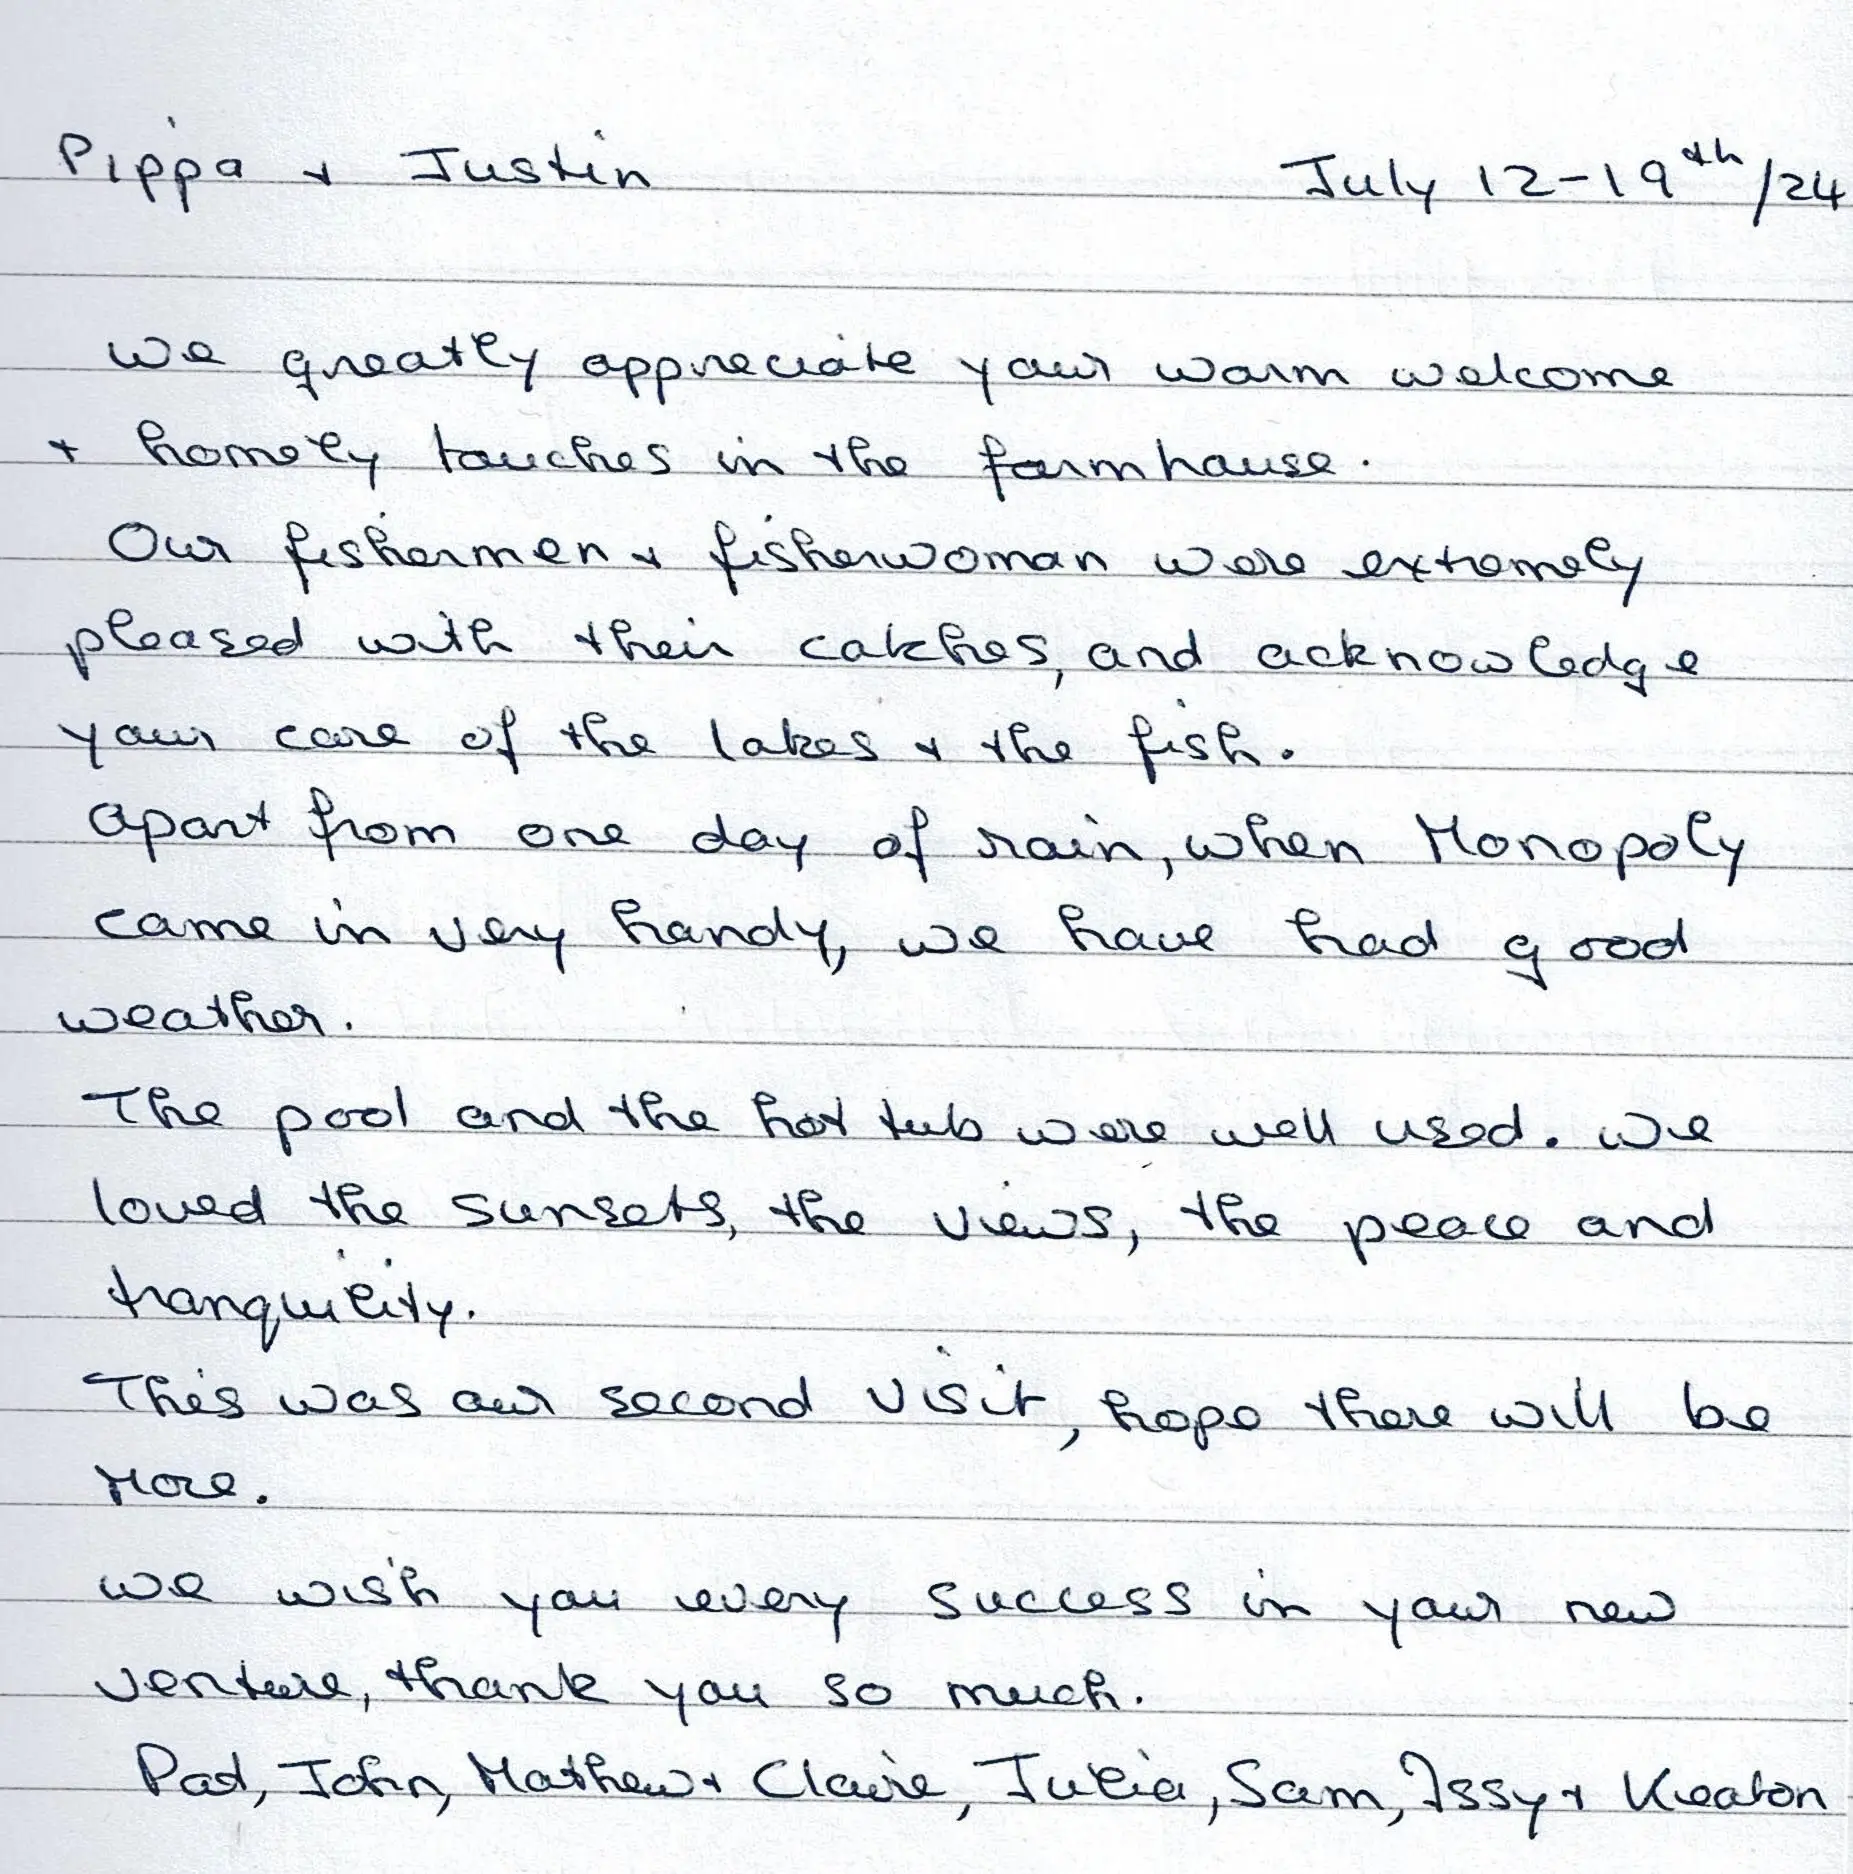 Pippa + Justin July 12-19th/24
We greatly appreciate your warm welcome
+ homely touches in the farmhouse.
Our fishermen + fisherwoman were extremely
pleased with their catches, and acknowledge
your care of the lakes + the fish.
Apart from one day of rain, when Monopoly
came in very handy, we have had good
weather.
The pool and the hot tub were well used. We
loved the sunsets, the views, the peace and
tranquility.
This was our second visit, hope there will be
More.
We wish you every success in your new
venture, thank you so much.
Pat, John, Mathew + Claire, Julia, Sam, Issy + Keaton